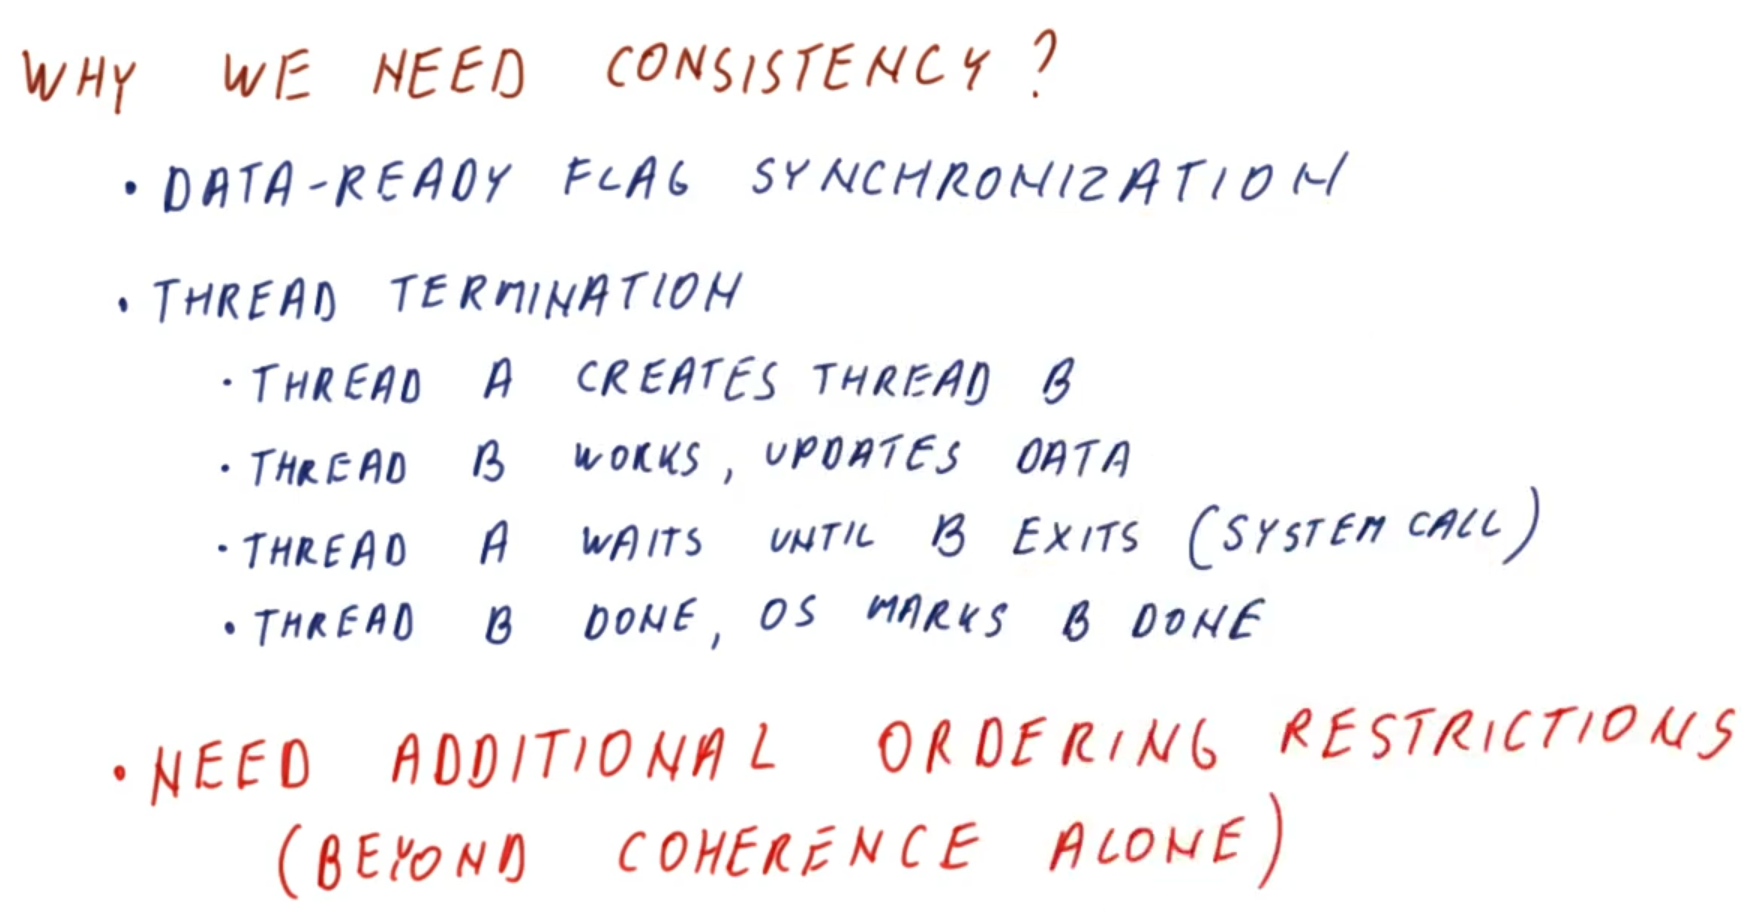 WHY WE NEED CONSISTENCY?
• DATA-READY FLAG SYNCHRONIZATION
• THREAD TERMINATION
• THREAD A CREATES THREAD B
• THREAD B WORKS, UPDATES DATA
• THREAD A WAITS UNTIL B EXITS (SYSTEM CALL)
• THREAD B DONE, OS MARKS B DONE
• NEED ADDITIONAL ORDERING RESTRICTIONS
(BEYOND COHERENCE ALONE)